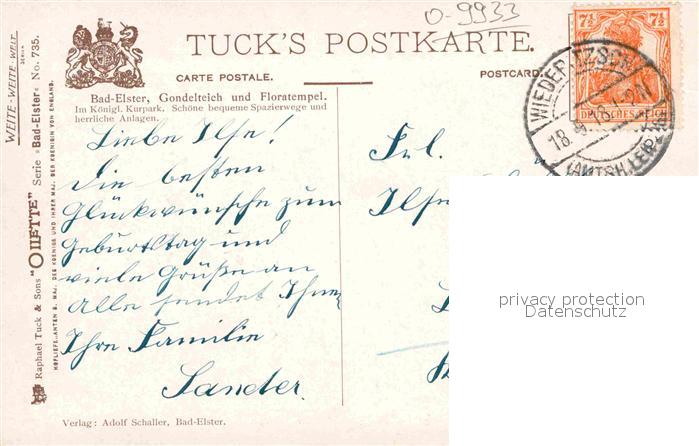 o-9933
TUCK'S POSTKARTE.
CARTE POSTALE.
POSTCARD.
7½ 7½
DEUTSCHES REICH
WIEDERITZSCH
18.
(AMTSH. LEIPZIG)
Bad-Elster, Gondelteich und Floratempel.
Im Königl. Kurpark. Schöne bequeme Spazierwege und
herrliche Anlagen.
Liebe Ilse!
Die besten
Glückwünsche zum
Geburtstag und
viele Grüße an
Alle sendet Ihnen
Ihre Familie
Sander.
Frl.
Ilse
privacy protection
Datenschutz
Verlag: Adolf Schaller, Bad-Elster.
WEITE-WEITE-WELT
BERLIN
Raphael Tuck & Sons "OILETTE" Serie "Bad-Elster" No. 735.
HOFLIEFERANTEN S. MAJ. DES KOENIGS UND IHRER MAJ. DER KOENIGIN VON ENGLAND.